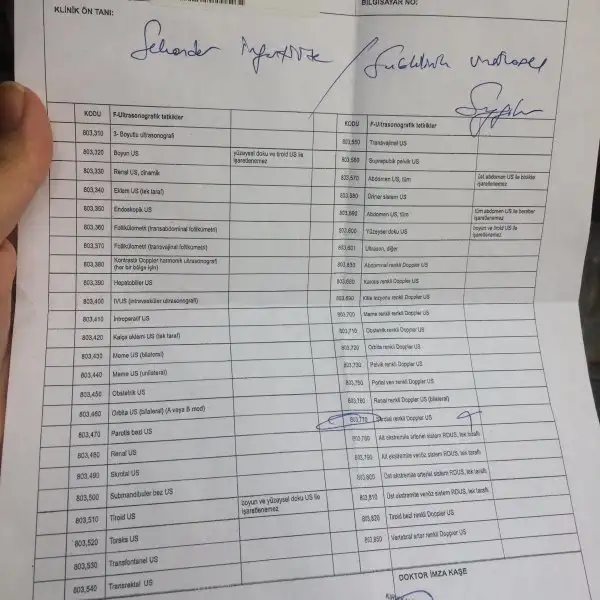 KLİNİK ÖN TANI:
BİLGİSAYAR NO:
KODU F-Ultrasonografik tetkikler
803,310 3- Boyutlu ultrasonografi
803,320 Boyun US yüzeysel doku ve tiroid US ile
işaretlenemez
803,330 Renal US, dinamik
803,340 Eklem US (tek taraf)
803,350 Endoskopik US
803,360 Folikülometri (transabdominal folikümetri)
803,370 Folikülometri (transvajinal folikümetri)
803,380 Kontrastlı Doppler harmonik ultrasonografi
(her bir bölge için)
803,390 Hepatobilier US
803,400 IVUS (intravasküler ultrasonografi)
803,410 İntroperatif US
803,420 Kalça eklemi US (tek taraf)
803,430 Meme US (bilateral)
803,440 Meme US (unilateral)
803,450 Obstetrik US
803,460 Orbita US (bilateral) (A veya B mod)
803,470 Parotis bezi US
803,480 Renal US
803,490 Skrotal US
803,500 Submandibuler bez US
803,510 Tiroid US boyun ve yüzeysel doku US ile
işaretlenemez
803,520 Toraks US
803,530 Transfontanel US
803,540 Transrektal US
KODU F-Ultrasonografik tetkikler
803,550 Transvajinal US
803,560 Suprapubik pelvik US
803,570 Abdomen US, tüm üst abdomen US ile birlikte
işaretlenemez
803,580 Üriner sistem US
Abdomen US, tüm tüm abdomen US ile beraber
işaretlenemez
803,600 Yüzeysel doku US boyun ve tiroid US ile
işaretlenemez
Ultrason, diğer
803,630 Abdominal renkli Doppler US
renkli Doppler US
803,690 Kitle lezyonu renkli Doppler US
803,700 Meme renkli renkli Doppler US
803,710 Obstetrik renkli Doppler US
803,720 Orbita renkli Doppler US
803,730 Pelvik renkli Doppler US
803,750 Portal ven renkli Doppler US
803,760 Renal renkli Doppler US (bilateral)
803,770 renkli Doppler US
803,780 Alt ekstremite arteriel sistem RDUS, tek taraflı
803,790 Alt ekstremite venöz sistem RDUS, tek taraflı
803,800 Üst ekstremite arteriel sistem RDUS, tek taraflı
803,810 Üst ekstremite venöz sistem RDUS, tek taraflı
803,820 Tiroid bezi renkli Doppler US
803,850 Vertebral arter renkli Doppler US
DOKTOR İMZA KAŞE